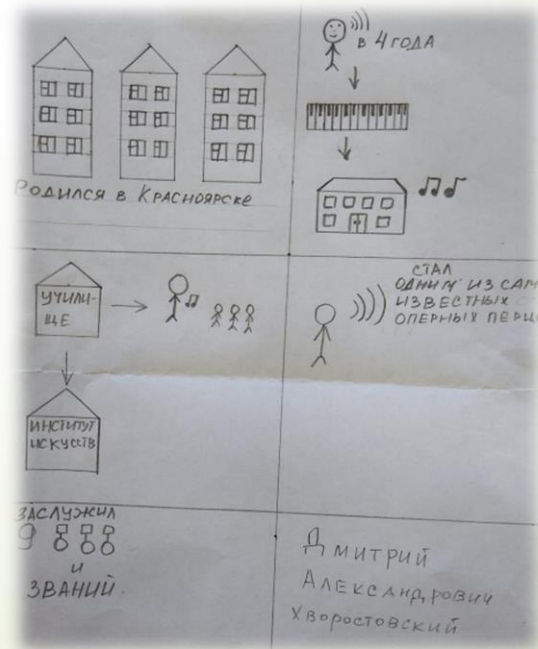 Родился в Красноярске
в 4 года
УЧИЛИ-
ЩЕ
ИНСТИТУТ
ИСКУССТВ
СТАЛ
ОДНИМ ИЗ САМ
ИЗВЕСТНЫХ
ОПЕРНЫХ ПЕВЦ
ЗАСЛУЖИЛ
9
И
ЗВАНИЙ.
Дмитрий
Александрович
Хворостовский